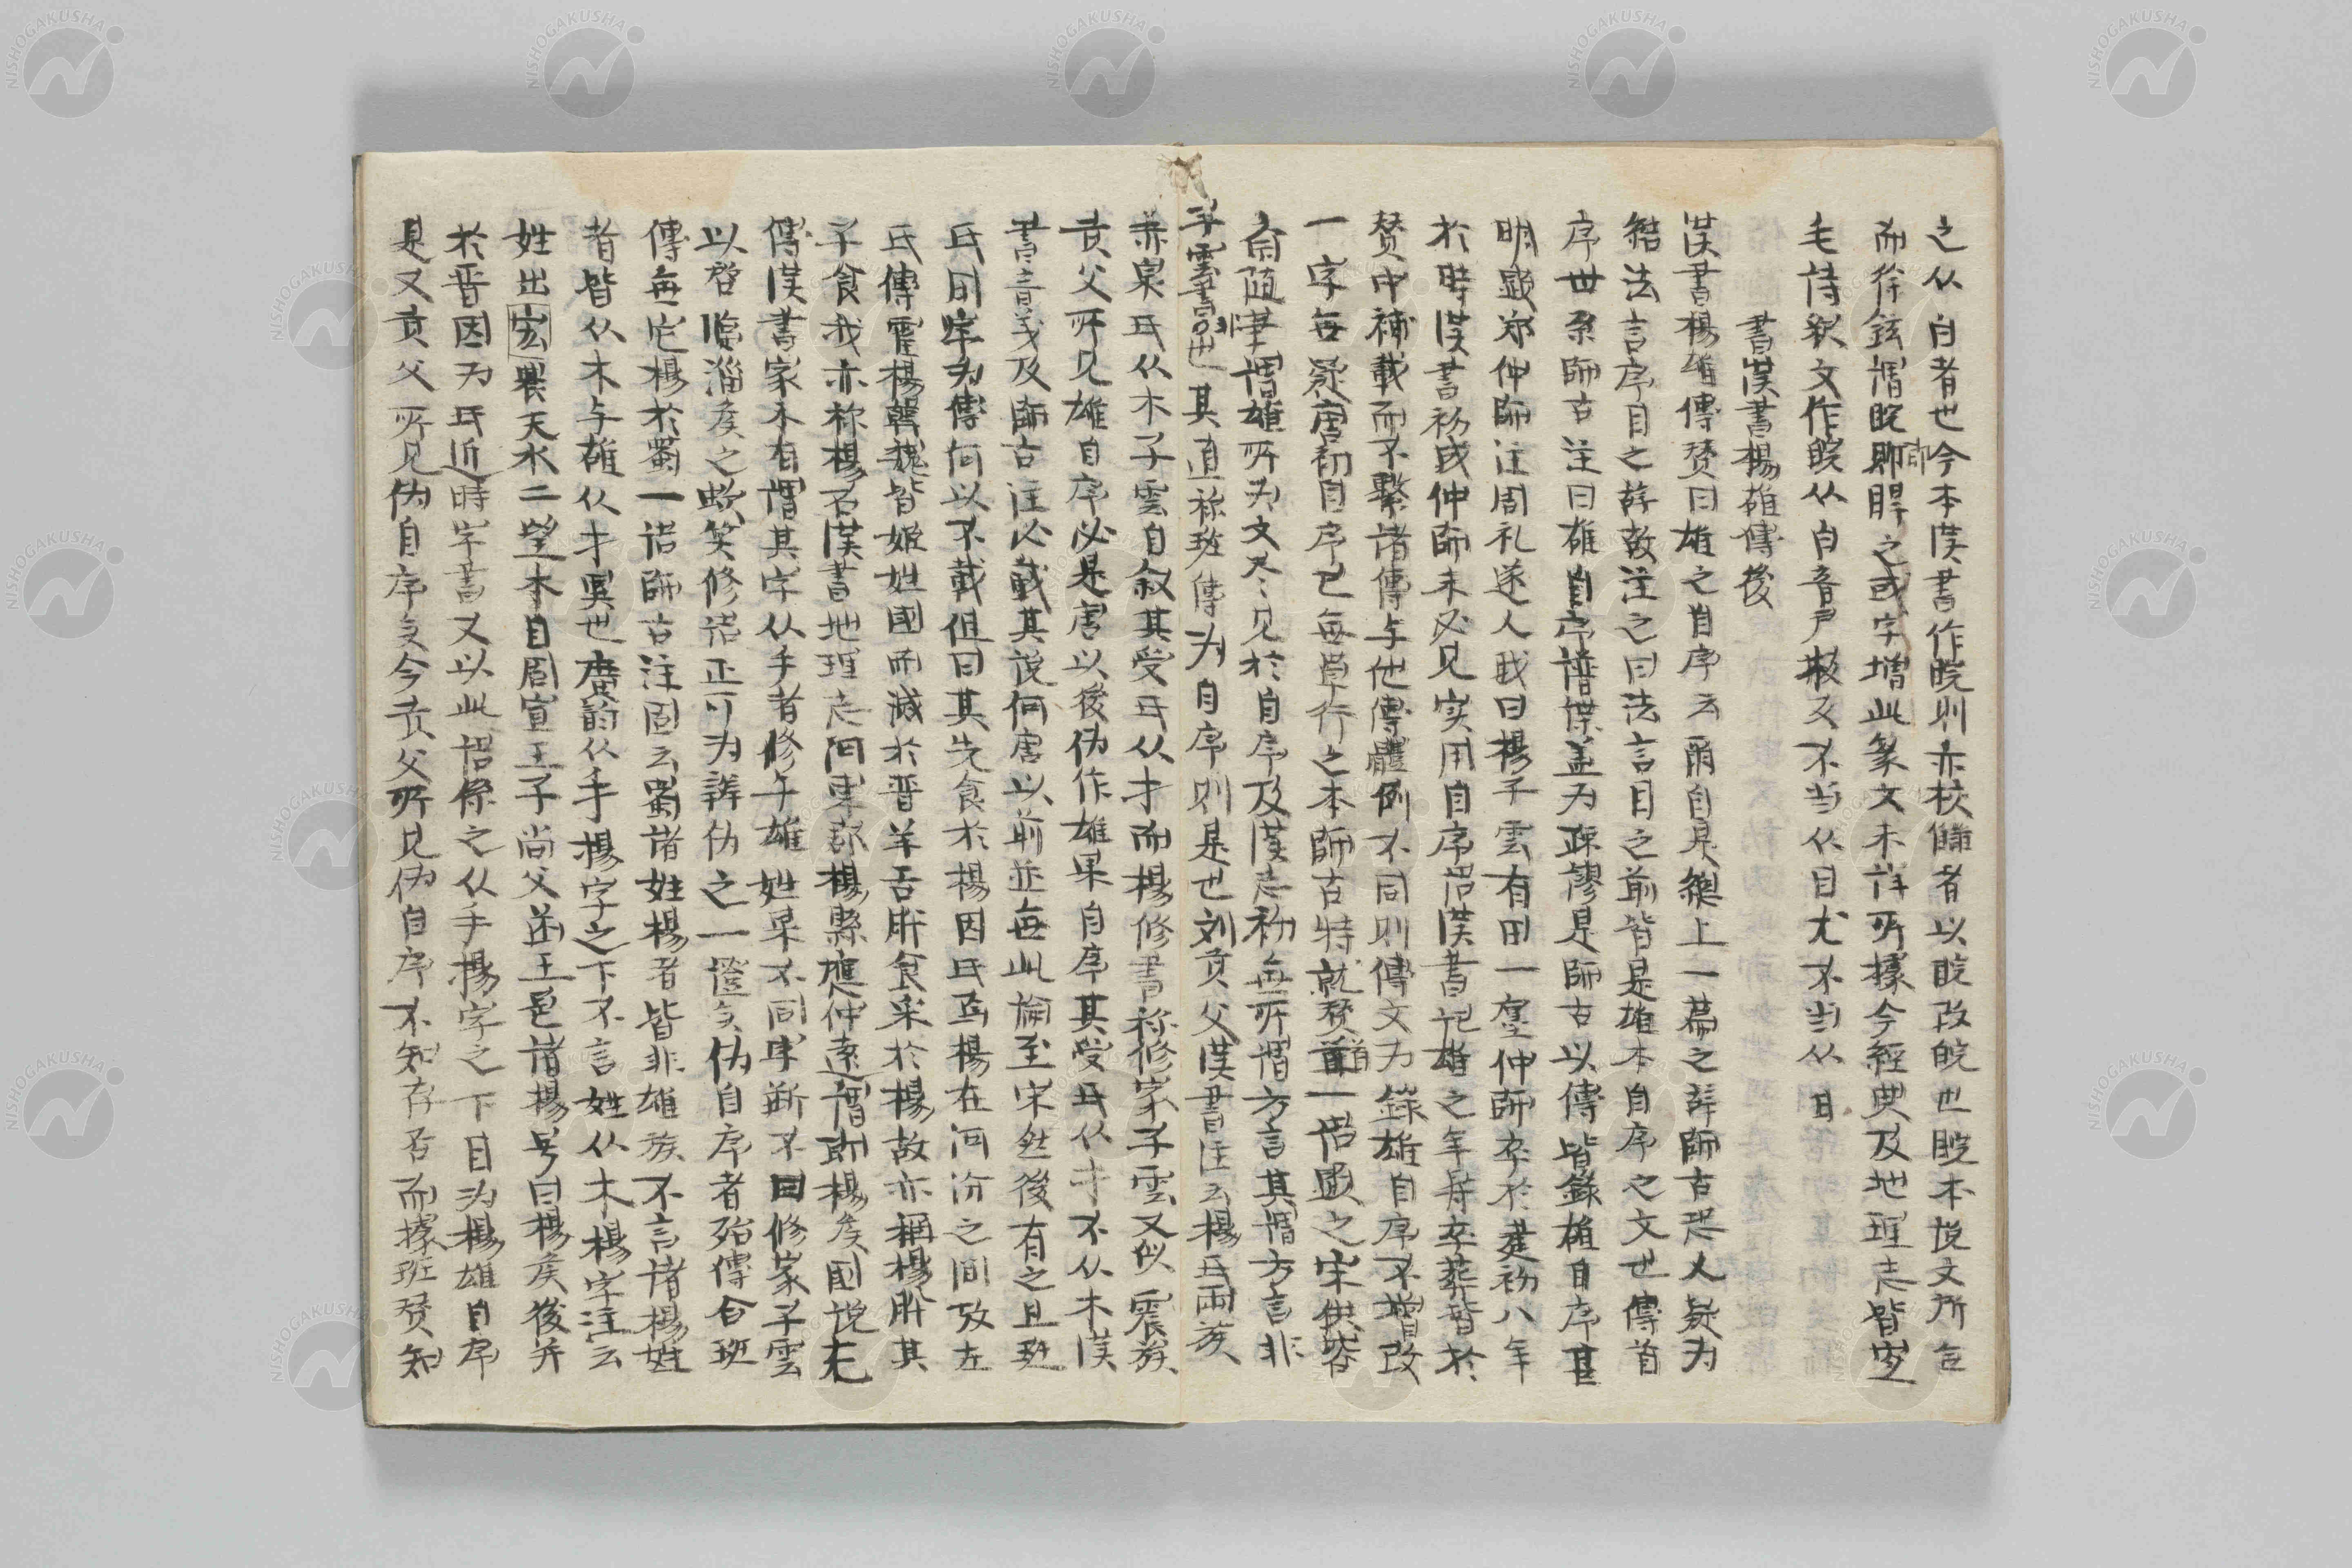 之从白者也今本漢書作晥則亦校讎者以晥改皖也晥本說文所無
而徐鉉謂晥即睅之或字增此篆文未詳所據今經典及地理志皆定
毛詩釈文作晥从白音戸板又不当从日尤不当从目
書漢書楊雄傳後
漢書楊雄傳賛曰雄之自序云爾自是總上一篇之辞師古恐人疑为
結法言序目之辞故注之曰法言目之前皆是雄本自序之文也傳首
序世系師古注曰雄自序譜諜盖为疎謬是師古以傳皆錄雄自序甚
明顕郑仲師注周礼遂人職曰楊子雲有田一㕓仲師卒於建初八年
於時漢書初成仲師未必見实用自序語漢書記雄之年寿卒葬皆於
賛中補載而不繫諸傳与他傳體例不同則傳文为錄雄自序不增改
一字每疑唐初自序已每单行之本師古特就賛首一語顕之宋洪容
斎随筆謂雄所为文尽見於自序及漢志初無所謂方言其謂方言非
子雲書非也其直称班傳为自序則是也刘贡父漢書注云楊氏兩族
赤泉氏从木子雲自叙其受氏从才而楊修書称修家子雲又似震族
贡父所見雄自序必是唐以後伪作雄果自序其受氏从才不从木漢
書音義及師古注必載其説何唐以前並每此論至宋然後有之且班
氏用字为傳何以不載但曰其先食於楊因氏焉楊在河汾之間攷左
氏傳霍楊韓魏皆姬姓國而滅於晋羊舌肸食采於楊故亦稱楊肸其
子食我亦称楊石漢書地理志河東郡楊縣應仲遠謂即楊矦國説左
傳漢書家未有謂其字从手者修与雄姓果不同字断不曰修家子雲
以啓臨淄矦之蚩笑修語正可为辨伪之一證矣伪自序者殆傳合班
傳每它楊於蜀一語師古注固云蜀諸姓楊者皆非雄族不言諸楊姓
者皆从木与雄从才異也廣韵从手揚字之下不言姓从木楊字注云
姓出宏農天水二望本自周宣王子尚父幽王邑諸楊号曰楊矦後并
於晋因为氏近時字書又以此語係之从手揚字之下目为揚雄自序
是又贡父所見伪自序矣今贡父所見伪自序不知存否而據班賛知